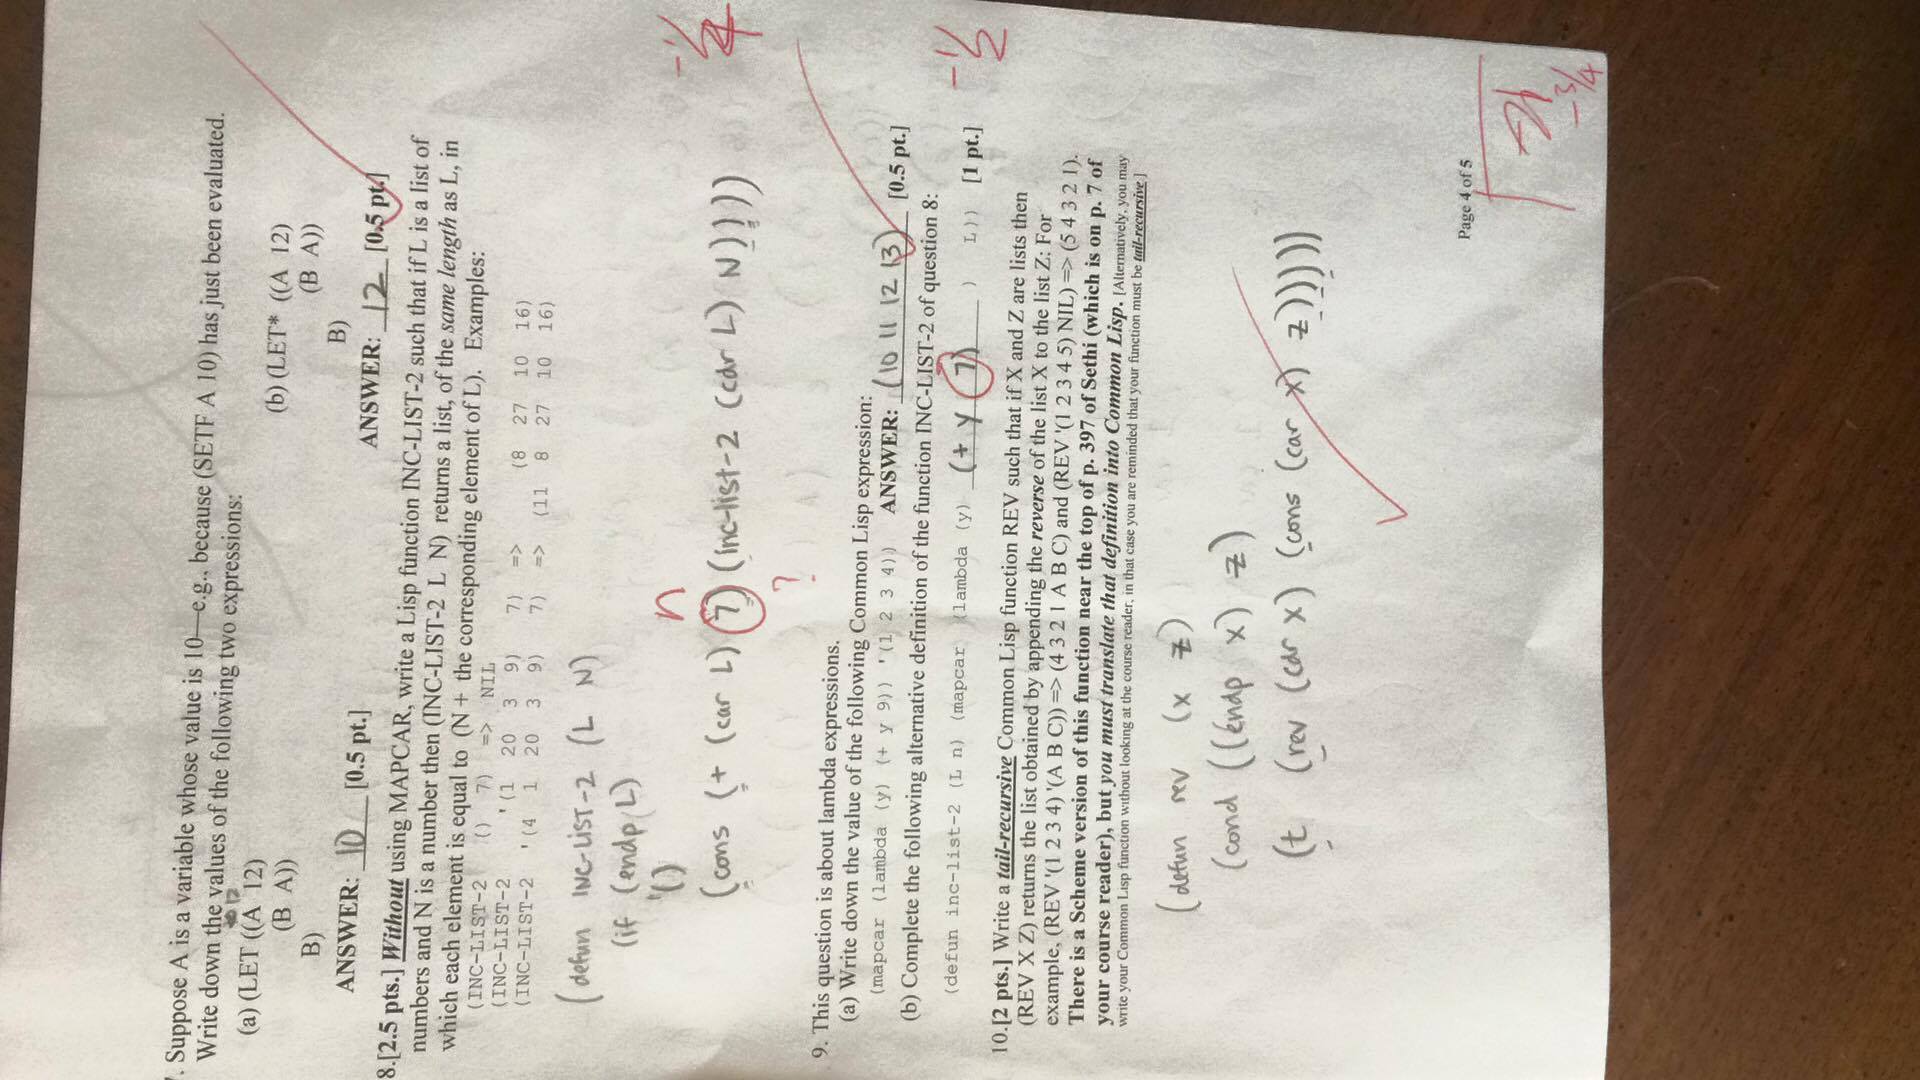 . Suppose A is a variable whose value is 10—e.g., because (SETF A 10) has just been evaluated.
Write down the values of the following two expressions:
12
(a) (LET ((A 12)
(B A))
B)
ANSWER: 10 [0.5 pt.]
(b) (LET* ((A 12)
(B A))
B)
ANSWER: 12 [0.5 pt.]
8.[2.5 pts.] Without using MAPCAR, write a Lisp function INC-LIST-2 such that if L is a list of
numbers and N is a number then (INC-LIST-2 L N) returns a list, of the same length as L, in
which each element is equal to (N + the corresponding element of L). Examples:
(INC-LIST-2 () 7) => NIL
(INC-LIST-2 '(1 20 3 9) 7) => (8 27 10 16)
(INC-LIST-2 '(4 1 20 3 9) 7) => (11 8 27 10 16)
(defun INC-LIST-2 (L N)
(if (endp L)
'()
n
(cons (+ (car L) 7) (inc-list-2 (cdr L) N))))
-1/4
?
9. This question is about lambda expressions.
(a) Write down the value of the following Common Lisp expression:
(mapcar (lambda (y) (+ y 9)) '(1 2 3 4)) ANSWER: (10 11 12 13) [0.5 pt.]
(b) Complete the following alternative definition of the function INC-LIST-2 of question 8:
(defun inc-list-2 (L n) (mapcar (lambda (y) (+ y 7) ) L)) [1 pt.]
-1/2
10.[2 pts.] Write a tail-recursive Common Lisp function REV such that if X and Z are lists then
(REV X Z) returns the list obtained by appending the reverse of the list X to the list Z: For
example, (REV '(1 2 3 4) '(A B C)) => (4 3 2 1 A B C) and (REV '(1 2 3 4 5) NIL) => (5 4 3 2 1).
There is a Scheme version of this function near the top of p. 397 of Sethi (which is on p. 7 of
your course reader), but you must translate that definition into Common Lisp. [Alternatively, you may
write your Common Lisp function without looking at the course reader, in that case you are reminded that your function must be tail-recursive.]
(defun rev (x z)
(cond ((endp x) z)
(t (rev (cdr x) (cons (car x) z)))))
Page 4 of 5
-3/4